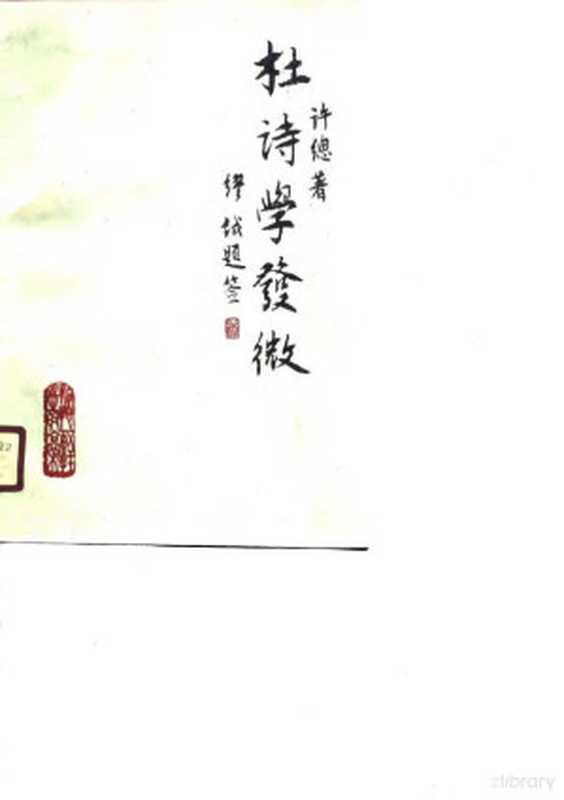 许總著
杜诗學發微
缪钺题签
22
zlibrary